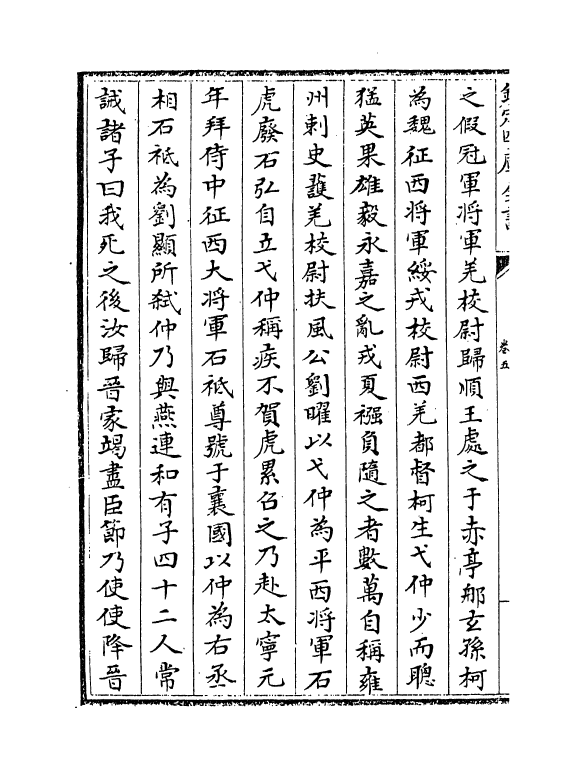 欽定四庫全書
卷五
之假冠軍將軍羌校尉歸順王處之于赤亭郍玄孫柯
為魏征西將軍綏戎校尉西羌都督柯生弋仲少而聰
猛英果雄毅永嘉之亂戎夏襁負隨之者數萬自稱雍
州刺史護羌校尉扶風公劉曜以弋仲為平西將軍石
虎廢石弘自立弋仲稱疾不賀虎累召之乃赴太寧元
年拜侍中征西大將軍石祗尊號于襄國以仲為右丞
相石祗為劉顯所弑仲乃與燕連和有子四十二人常
誡諸子曰我死之後汝歸晉家竭盡臣節乃使使降晉